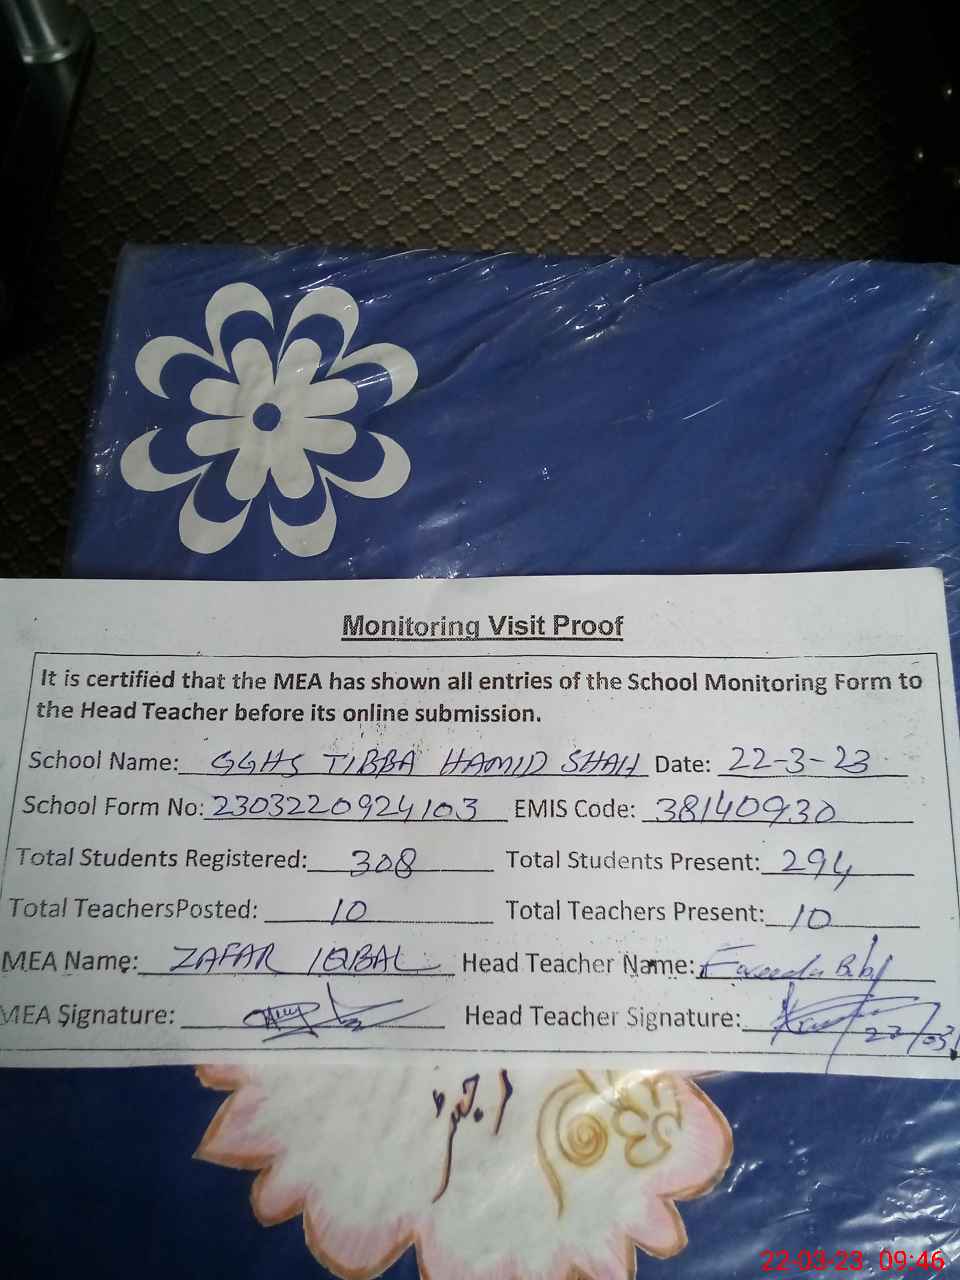 Monitoring Visit Proof
It is certified that the MEA has shown all entries of the School Monitoring Form to
the Head Teacher before its online submission.
School Name: GGHS TIBBA HAMID SHAH Date: 22-3-23
School Form No: 2303220924103 EMIS Code: 38140930
Total Students Registered: 308 Total Students Present: 294
Total TeachersPosted: 10 Total Teachers Present: 10
MEA Name: ZAFAR IQBAL Head Teacher Name: Fareeda Bibi
MEA Signature: Head Teacher Signature: 22/03
22-03-23 09:46